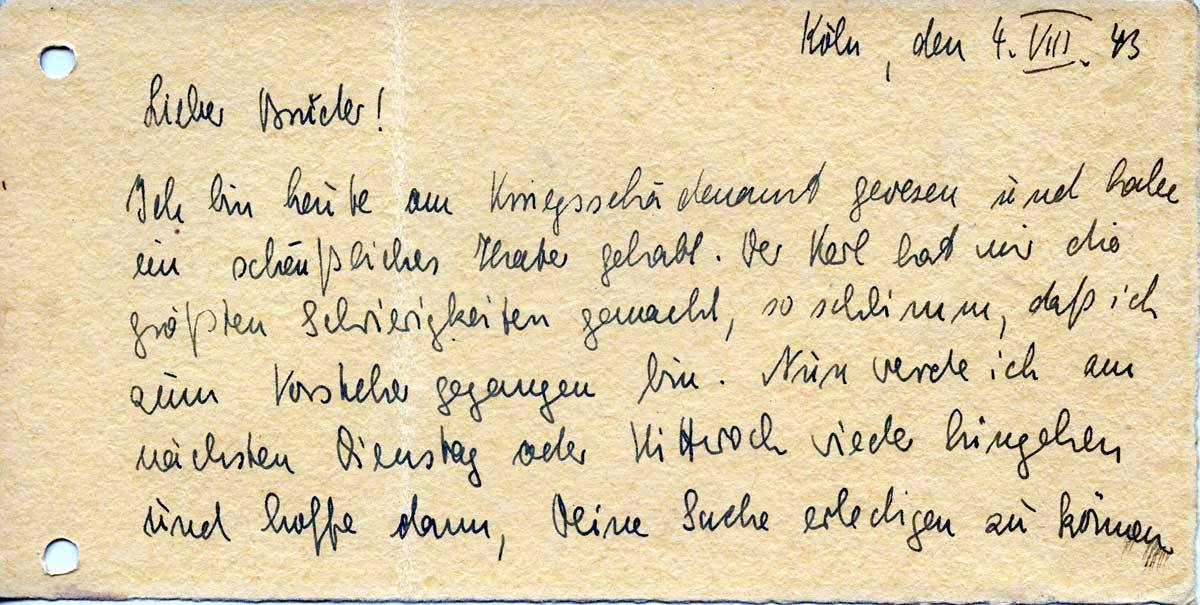 Köln, den 4. VIII. 43
Lieber Bruder!
Ich bin heute am Kriegsschädenamt gewesen und habe
ein scheußliches Theater gehabt. Der Kerl hat mir die
größten Schwierigkeiten gemacht, so schlimm, daß ich
zum Vorsteher gegangen bin. Nun werde ich am
nächsten Dienstag oder Mittwoch wieder hingehen
und hoffe dann, Deine Sache erledigen zu können